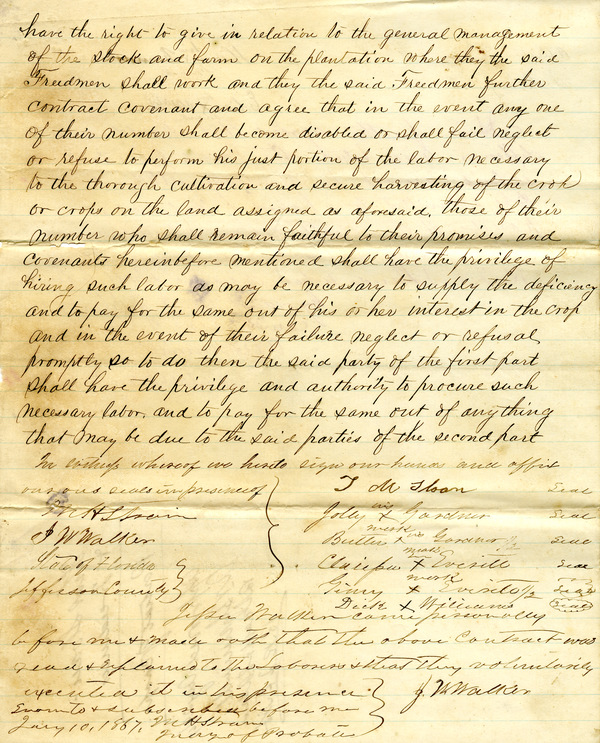 have the right to give in relation to the general management
of the stock and farm on the plantation where they the said
Freedmen shall work and they the said Freedmen further
contract covenant and agree that in the event any one
of their number shall become disabled or shall fail neglect
or refuse to perform his just portion of the labor necessary
to the thorough cultivation and secure harvesting of the crop
or crops on the land assigned as aforesaid, those of their
number who shall remain faithful to their promises and
covenants hereinbefore mentioned shall have the privilege of
hiring such labor as may be necessary to supply the deficiency
and to pay for the same out of his or her interest in the crop
and in the event of their failure neglect or refusal
promptly so to do then the said party of the first part
shall have the privilege and authority to procure such
necessary labor, and to pay for the same out of anything
that may be due to the said parties of the second part
In witness whereof we hereto sign our hands and affix
our seals in presence of
T M Sloan Seal
M H Strain
his
Jolly x Gardner Seal
mark
J W Walker
his
Butler x Gardner Seal
mark
State of Florida
x Everitt Seal
mark
Jefferson County
x Seal
Dick x Williams Seal
Jesse Walker came personally
before me & made oath that the above contract was
read & explained to the laborers & that they voluntarily
executed it in his presence
J. W Walker
Sworn to & subscribed before me
Jany 10, 1867. M H Strain
Judge of Probate